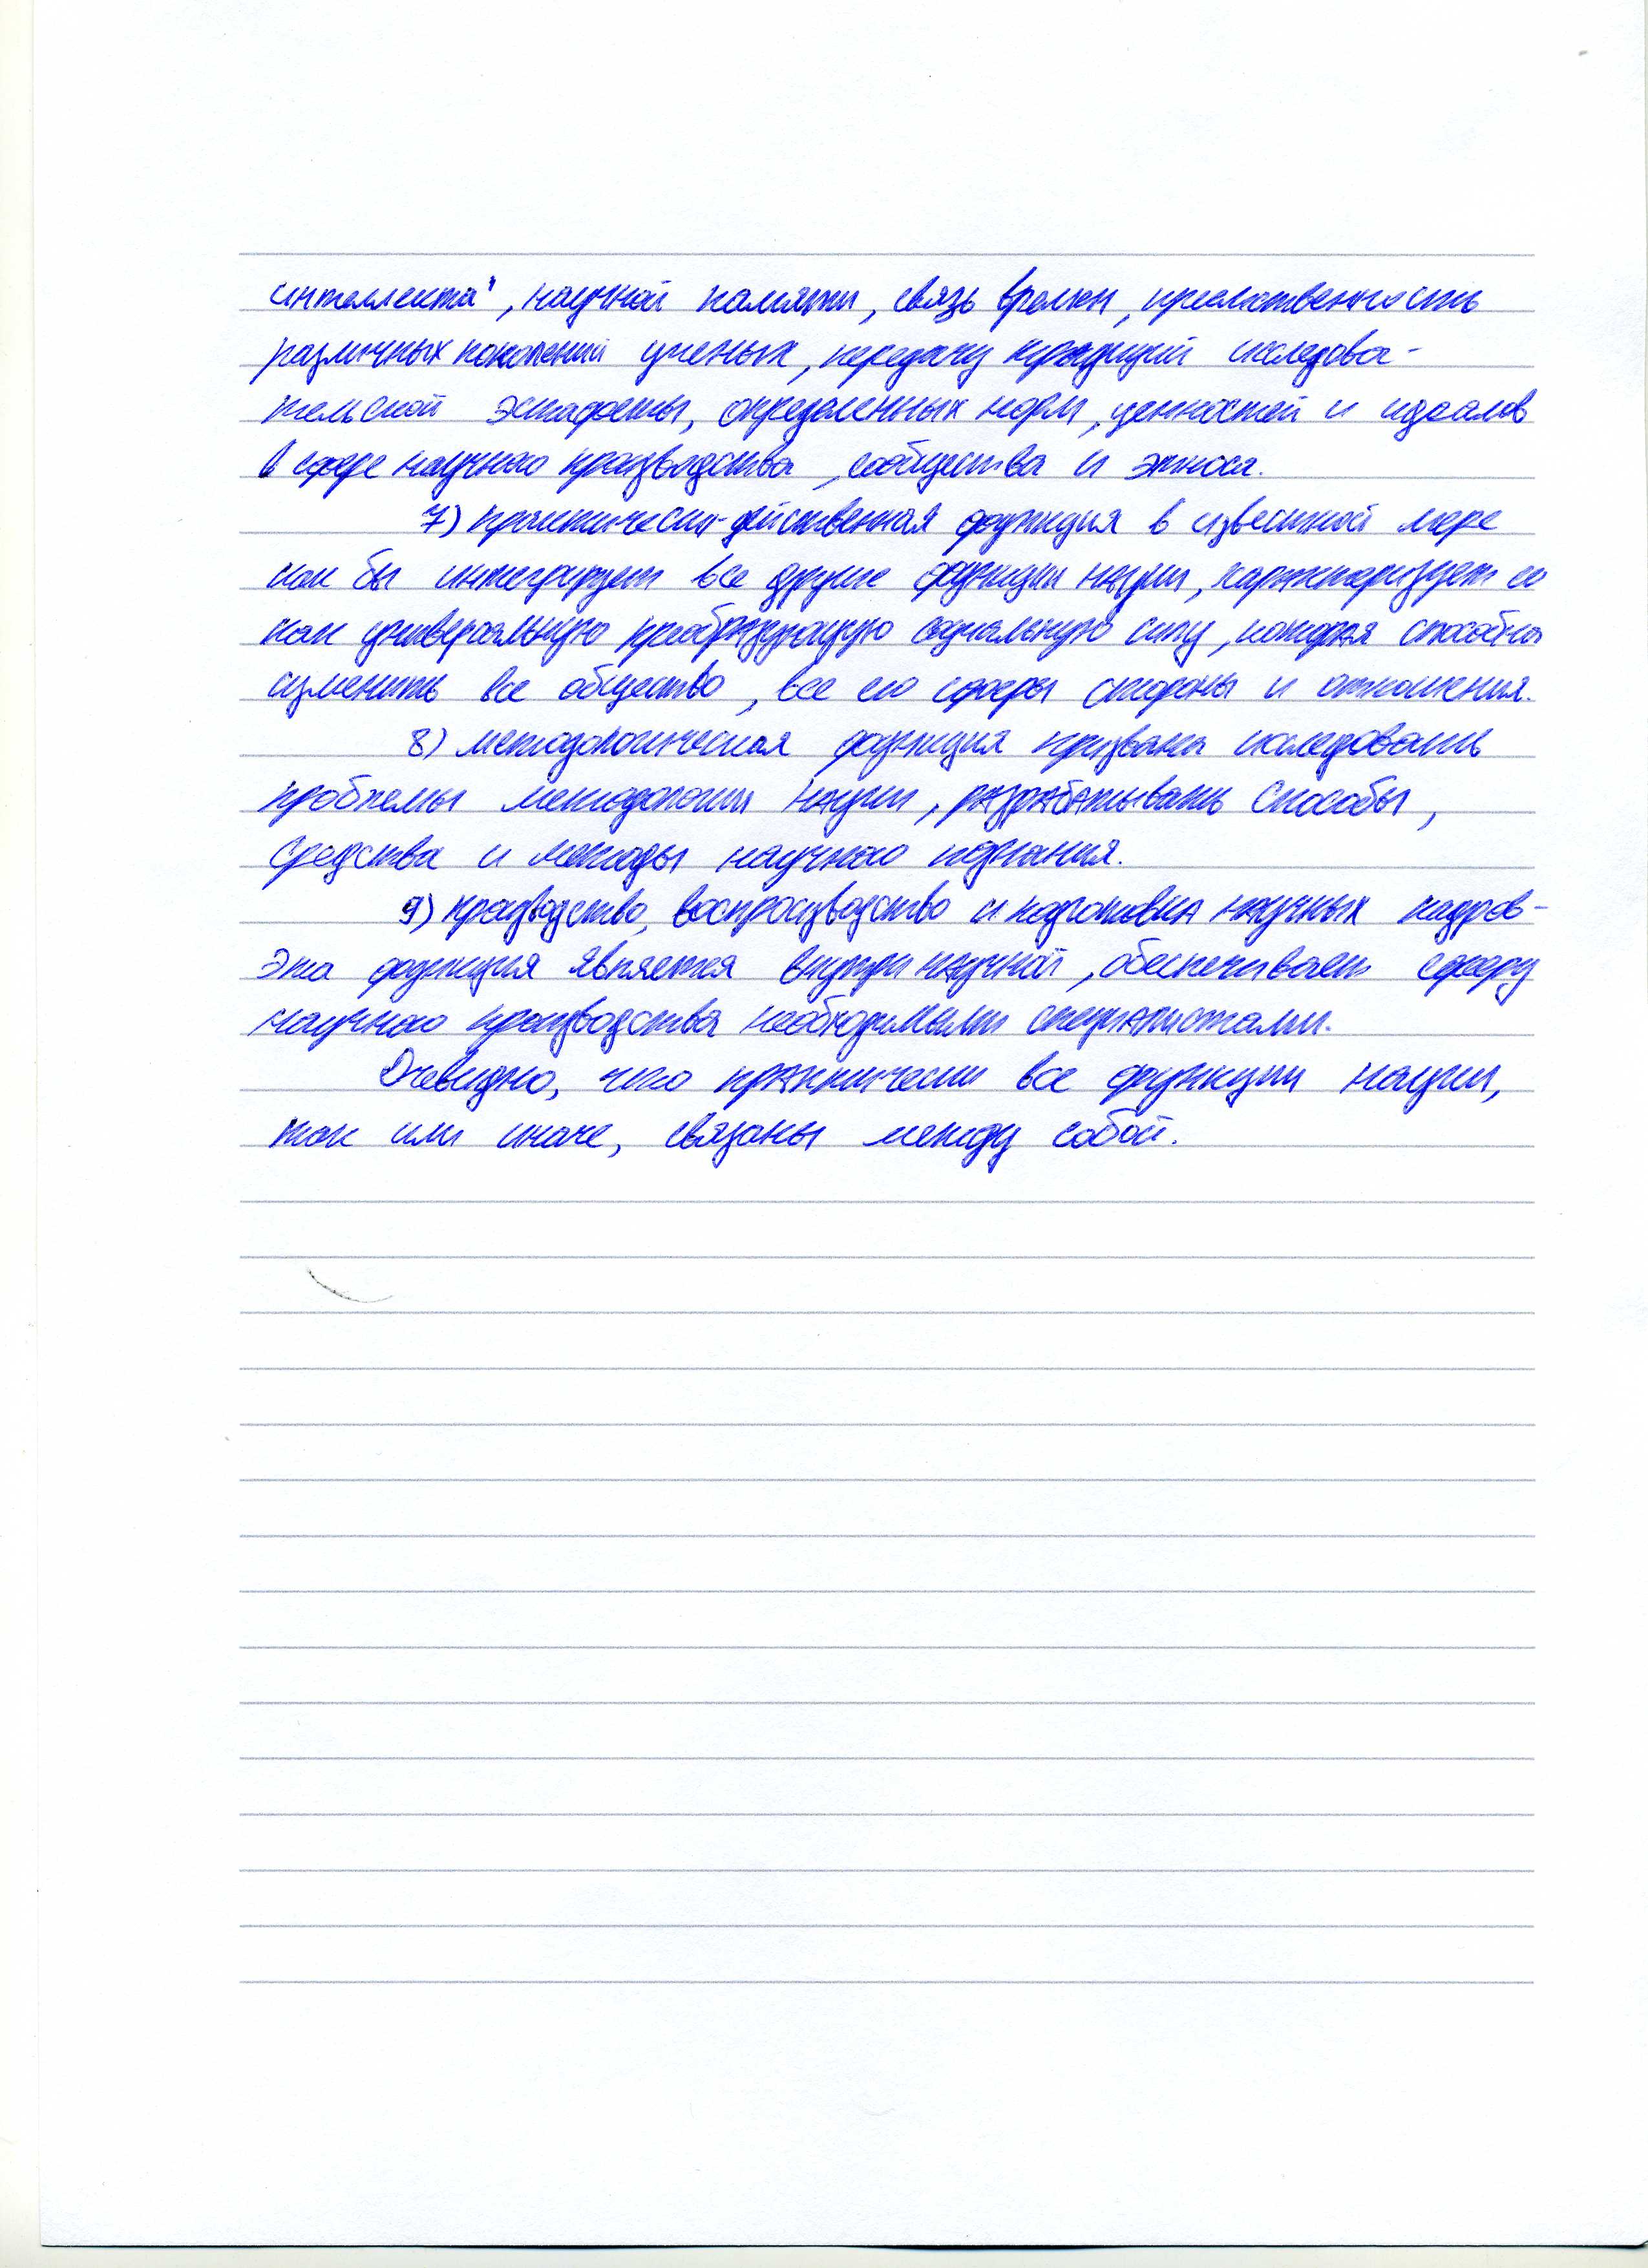 интеллекта", научной памяти, связь времен, преемственность
различных поколений ученых, передачу традиций исследова-
тельской эстафеты, определенных норм, ценностей и идеалов
в сфере научного производства, сообщества и этноса.
7) практически-действенная функция в известной мере
как бы интегрирует все другие функции науки, характеризует ее
как универсальную преобразующую социальную силу, которая способна
изменить все общество, все его сферы стороны и отношения.
8) методологическая функция призвана исследовать
проблемы методологии науки, разрабатывать способы,
средства и методы научного познания.
9) производство, воспроизводство и подготовка научных кадров-
эта функция является внутринаучной, обеспечивает сферу
научного производства необходимыми специалистами.
Очевидно, что практически все функции науки,
так или иначе, связаны между собой.